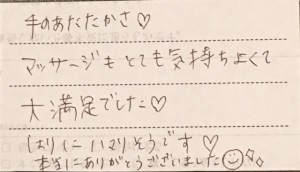 手のあたたかさ♡
マッサージもとても気持ちよくて
大満足でした♡
になりそうです♡
本当にありがとうございました